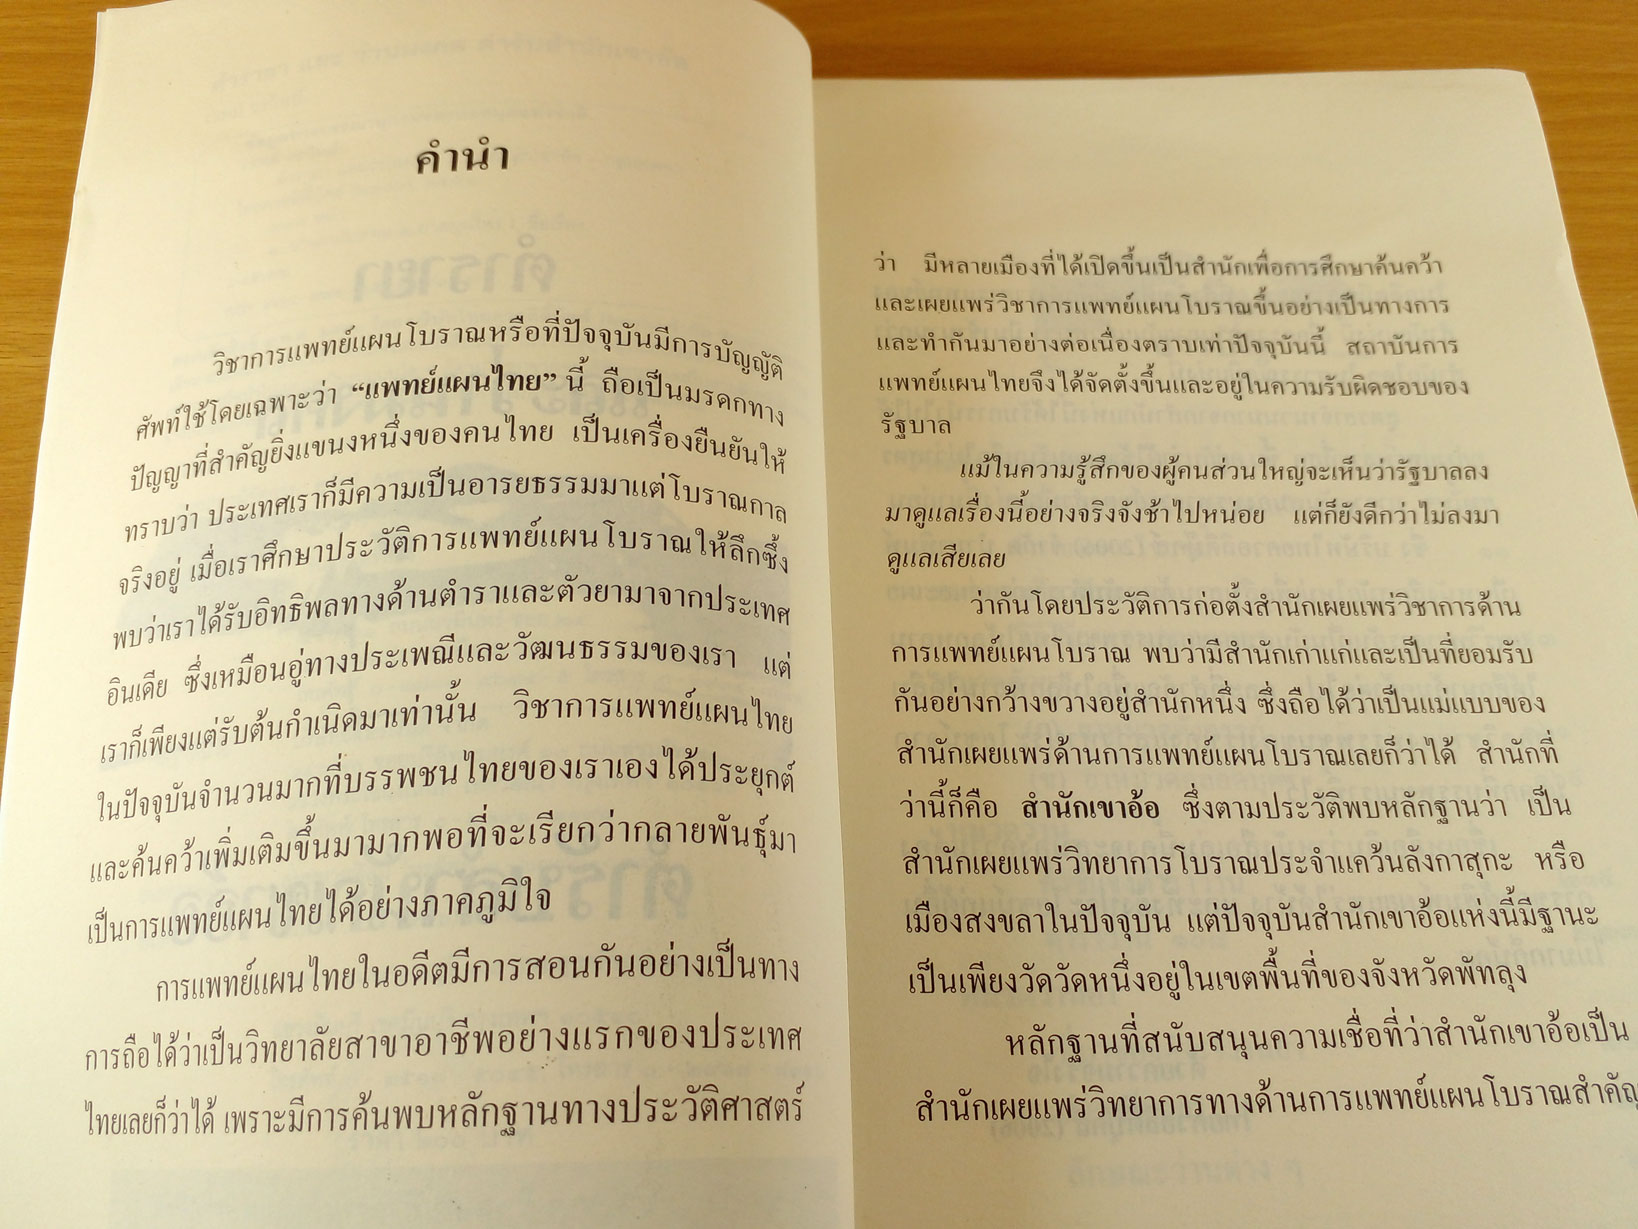 คำนำ
วิชาการแพทย์แผนโบราณหรือที่ปัจจุบันมีการบัญญัติ
ศัพท์ใช้โดยเฉพาะว่า “แพทย์แผนไทย” นี้ ถือเป็นมรดกทาง
ปัญญาที่สำคัญยิ่งแขนงหนึ่งของคนไทย เป็นเครื่องยืนยันให้
ทราบว่า ประเทศเราก็มีความเป็นอารยธรรมมาแต่โบราณกาล
จริงอยู่ เมื่อเราศึกษาประวัติการแพทย์แผนโบราณให้ลึกซึ้ง
พบว่าเราได้รับอิทธิพลทางด้านตำราและตัวยามาจากประเทศ
อินเดีย ซึ่งเหมือนอู่ทางประเพณีและวัฒนธรรมของเรา แต่
เราก็เพียงแต่รับต้นกำเนิดมาเท่านั้น วิชาการแพทย์แผนไทย
ในปัจจุบันจำนวนมากที่บรรพชนไทยของเราเองได้ประยุกต์
และค้นคว้าเพิ่มเติมขึ้นมามากพอที่จะเรียกว่ากลายพันธุ์มา
เป็นการแพทย์แผนไทยได้อย่างภาคภูมิใจ
การแพทย์แผนไทยในอดีตมีการสอนกันอย่างเป็นทาง
การถือได้ว่าเป็นวิทยาลัยสาขาอาชีพอย่างแรกของประเทศ
ไทยเลยก็ว่าได้ เพราะมีการค้นพบหลักฐานทางประวัติศาสตร์
ว่า มีหลายเมืองที่ได้เปิดขึ้นเป็นสำนักเพื่อการศึกษาค้นคว้า
และเผยแพร่วิชาการแพทย์แผนโบราณขึ้นอย่างเป็นทางการ
และทำกันมาอย่างต่อเนื่องตราบเท่าปัจจุบันนี้ สถาบันการ
แพทย์แผนไทยจึงได้จัดตั้งขึ้นและอยู่ในความรับผิดชอบของ
รัฐบาล
แม้ในความรู้สึกของผู้คนส่วนใหญ่จะเห็นว่ารัฐบาลลง
มาดูแลเรื่องนี้อย่างจริงจังช้าไปหน่อย แต่ก็ยังดีกว่าไม่ลงมา
ดูแลเสียเลย
ว่ากันโดยประวัติการก่อตั้งสำนักเผยแพร่วิชาการด้าน
การแพทย์แผนโบราณ พบว่ามีสำนักเก่าแก่และเป็นที่ยอมรับ
กันอย่างกว้างขวางอยู่สำนักหนึ่ง ซึ่งถือได้ว่าเป็นแม่แบบของ
สำนักเผยแพร่ด้านการแพทย์แผนโบราณเลยก็ว่าได้ สำนักที่
ว่านี้ก็คือ สำนักเขาอ้อ ซึ่งตามประวัติพบหลักฐานว่า เป็น
สำนักเผยแพร่วิทยาการโบราณประจำแคว้นลังกาสุกะ หรือ
เมืองสงขลาในปัจจุบัน แต่ปัจจุบันสำนักเขาอ้อแห่งนี้มีฐานะ
เป็นเพียงวัดวัดหนึ่งอยู่ในเขตพื้นที่ของจังหวัดพัทลุง
หลักฐานที่สนับสนุนความเชื่อที่ว่าสำนักเขาอ้อเป็น
สำนักเผยแพร่วิทยาการทางด้านการแพทย์แผนโบราณสำคัญ